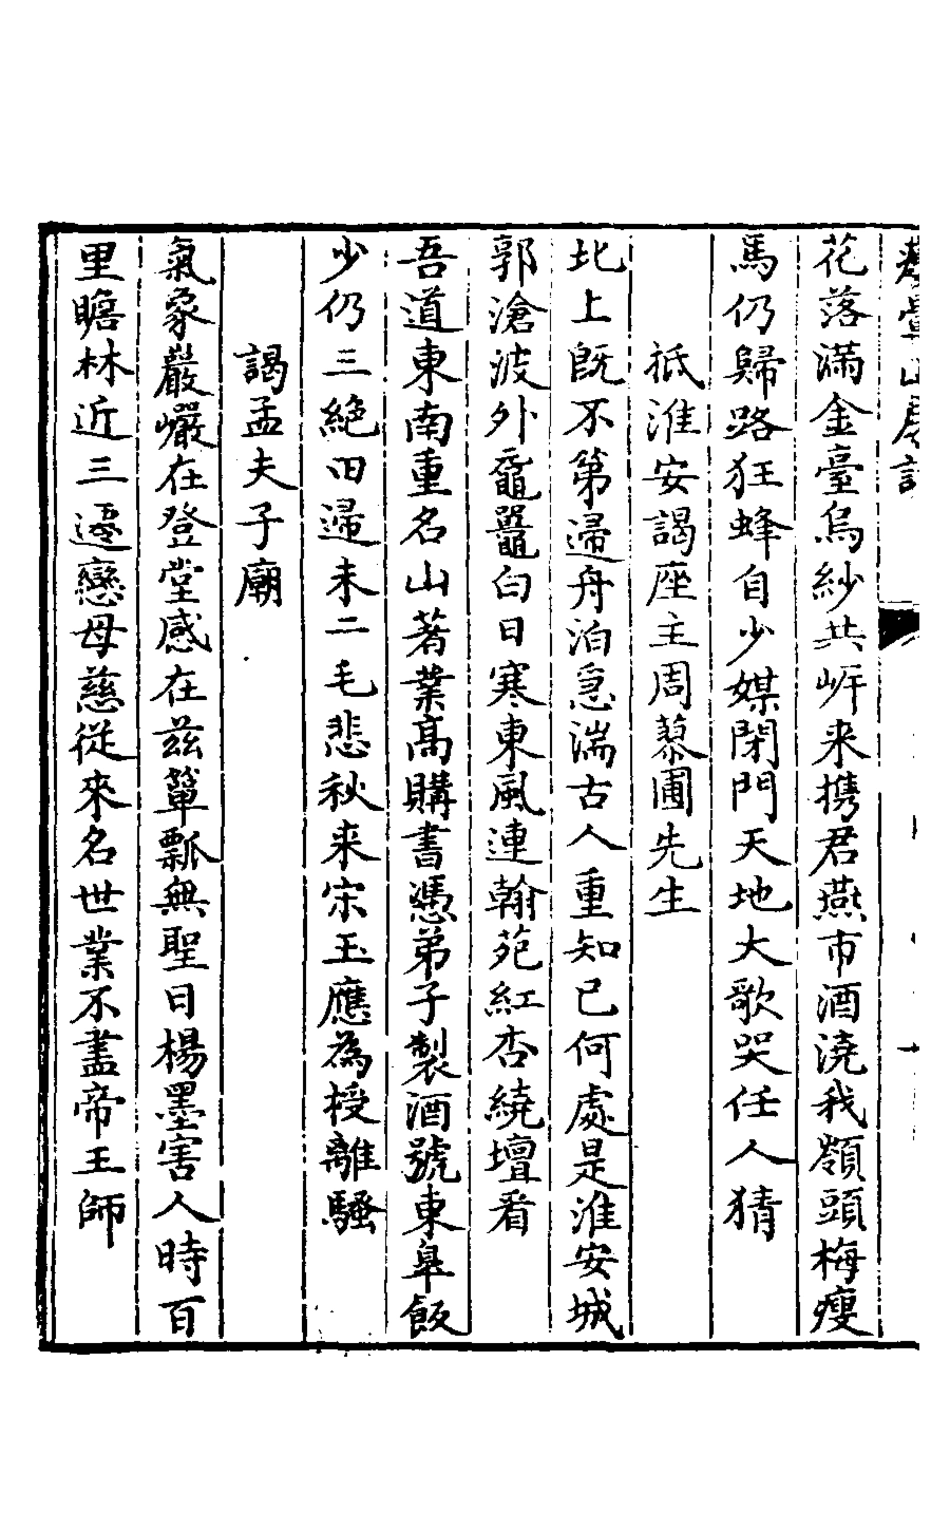 花落滿金臺烏紗共岸来携君燕市酒澆我嶺頭梅瘦
馬仍歸路狂蜂自少媒閉門天地大歌哭任人猜
祇淮安謁座主周藜圃先生
北上既不第歸舟泊急湍古人重知己何處是淮安城
郭滄波外黿鼉白日寒東風連翰苑紅杏繞壇看
吾道東南重名山著業高購書憑弟子製酒號東皋飯
少仍三絶田歸未二毛悲秋来宋玉應為授離騷
謁孟夫子廟
氣象巖巖在登堂感在兹簞瓢無聖日楊墨害人時百
里瞻林近三遷戀母慈從來名世業不盡帝王師